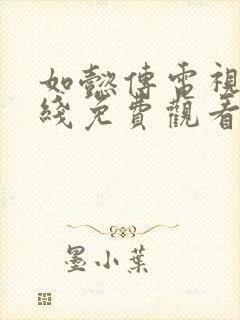 如懿傳電視
綫免費觀看
墨小葉